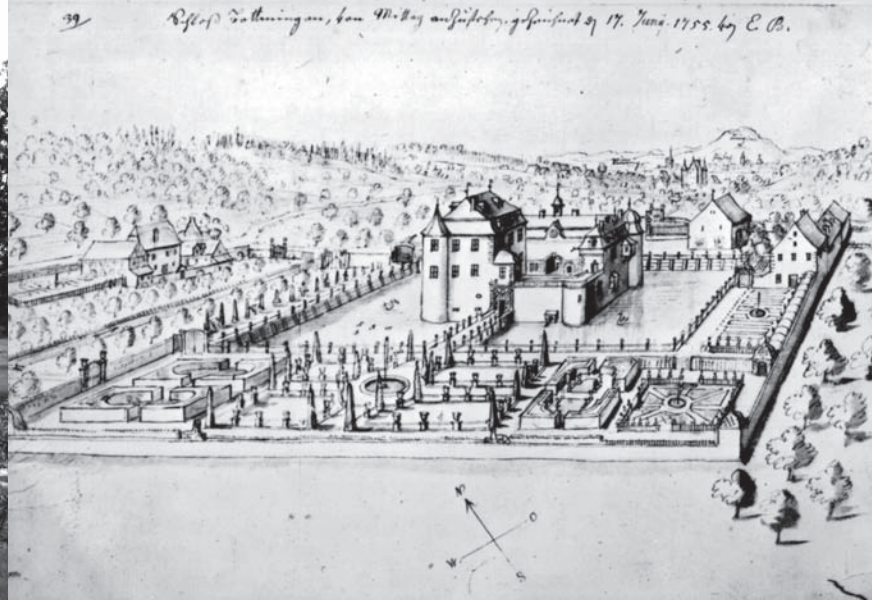 39
Schloß Bottmingen, von Mittag anzusehen, gezeichnet 17. Junij. 1755. von E. B.
N
O
W
S